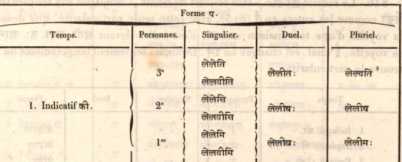 Forme प.
Temps. Personnes. Singulier. Duel. Pluriel.
लेलेति
3ᵉ लेलीतः लेल्यति
लेलयीति
लेलेसि
1. Indicatif की. 2ᵉ लेलीथः लेलीथ
लेलयीसि
लेलेमि
1ʳᵉ लेलीवः लेलीमः
लेलयीमि